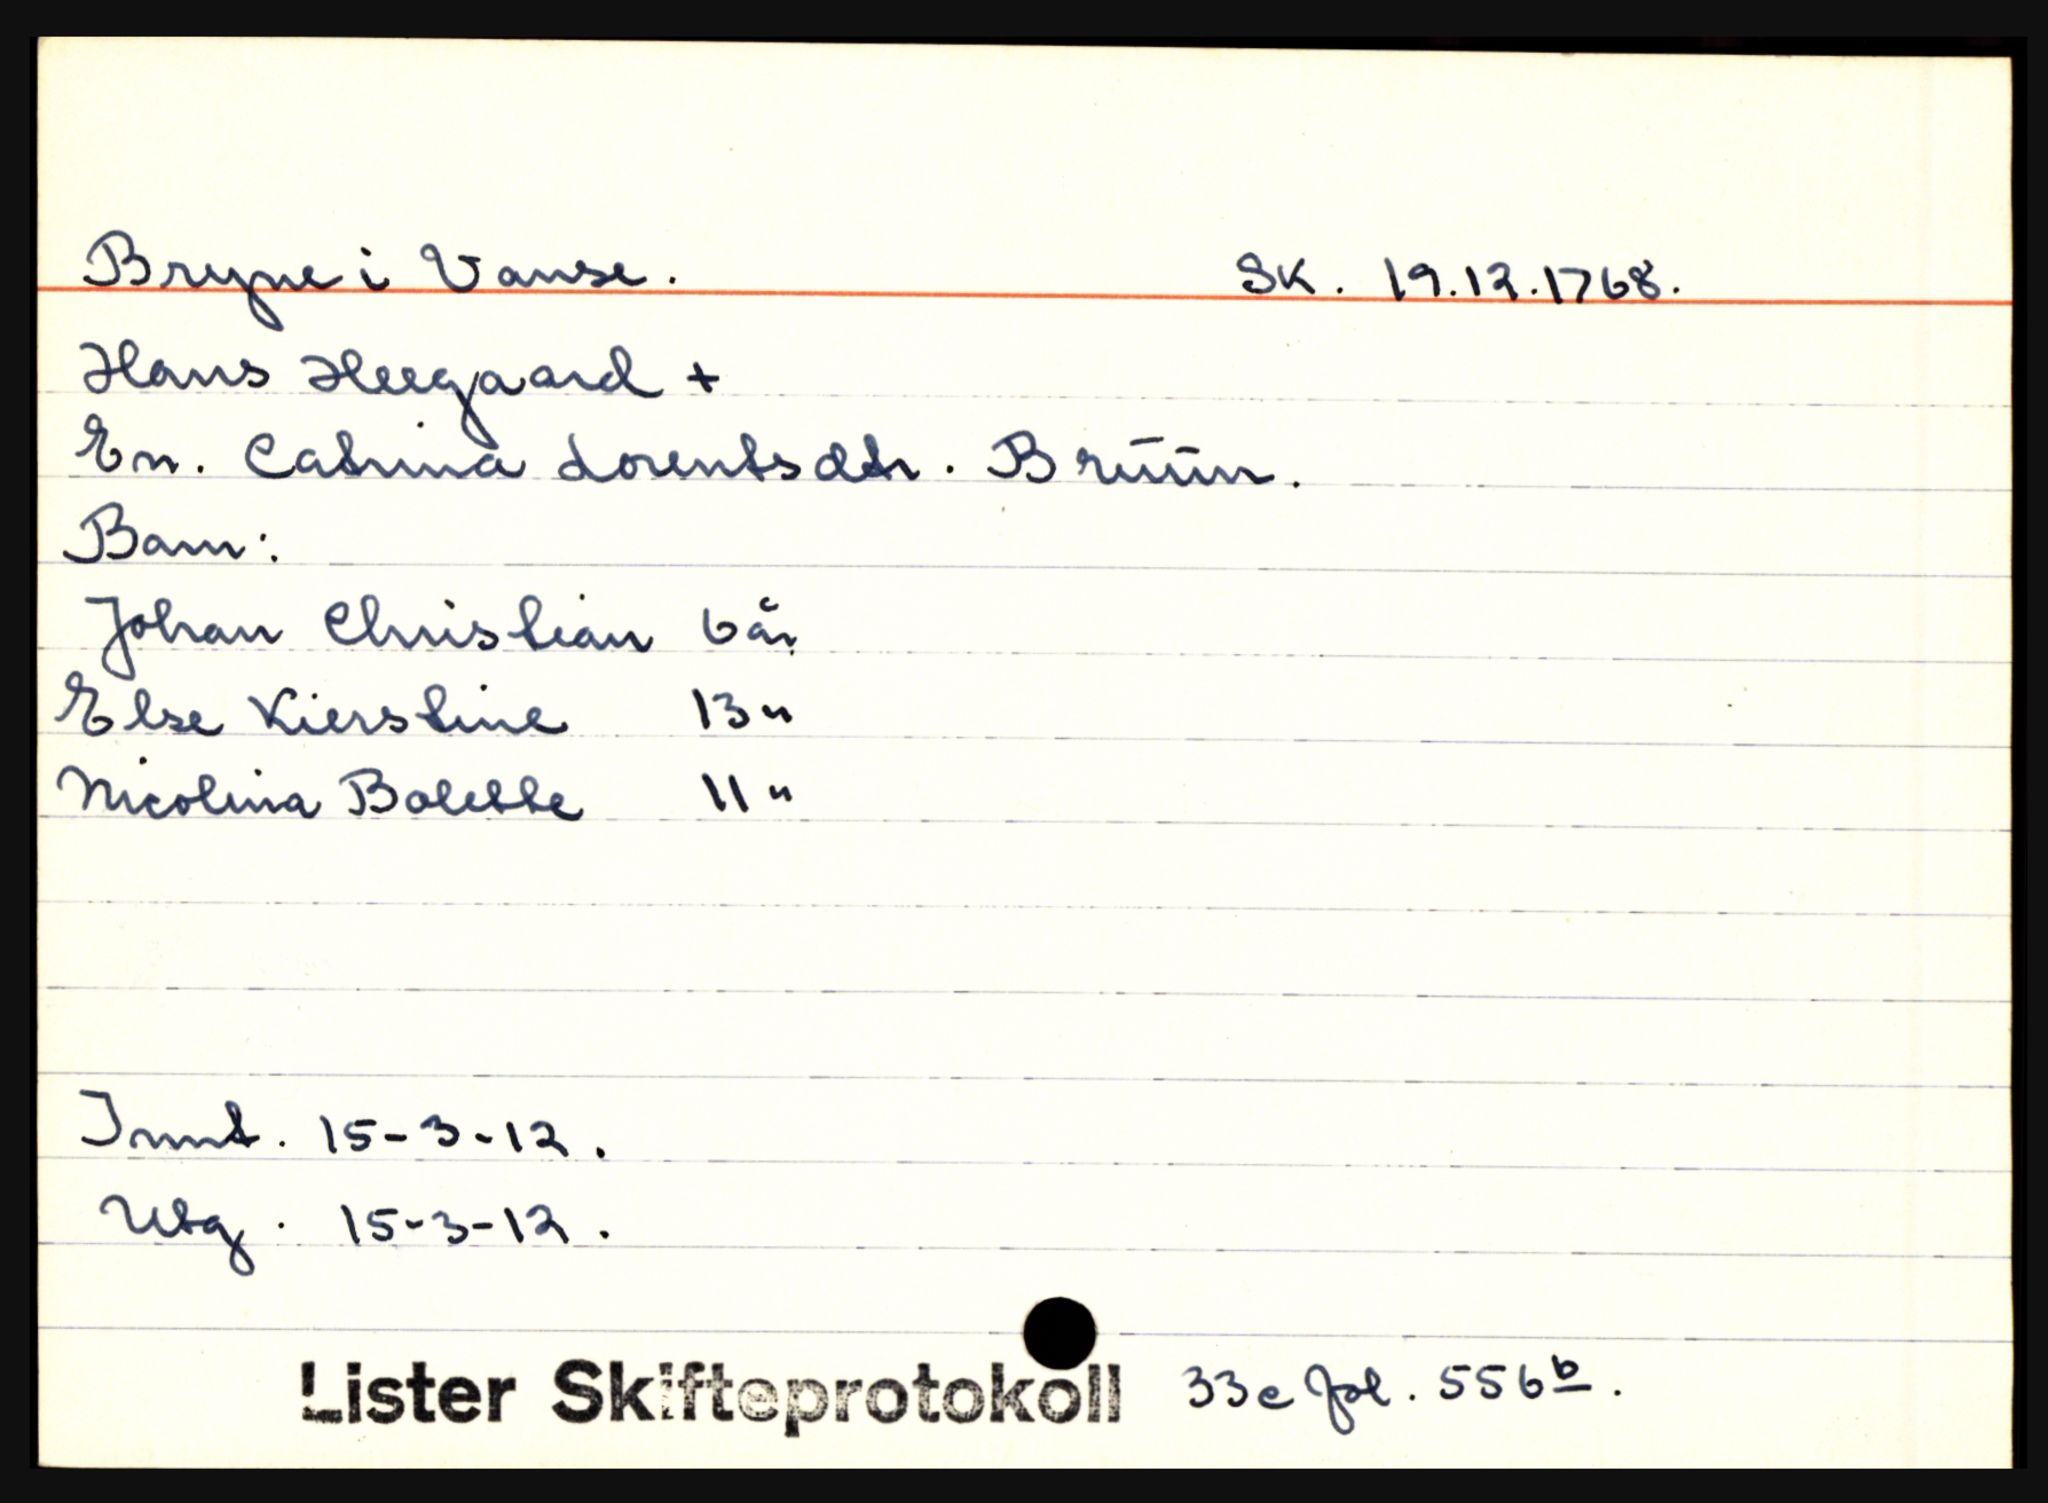 Bryne i Vanse. SK. 19.12.1768.
Hans Heegaard +
En. Catrina Lorentsdtr. Bruun.
Barn:
Johan Christian 6 år
Else Kierstine 13 "
Nicolina Bolette 11 "
Innt. 15-3-12.
Utg. 15-3-12.
Lister Skifteprotokoll 33c fol. 556b.